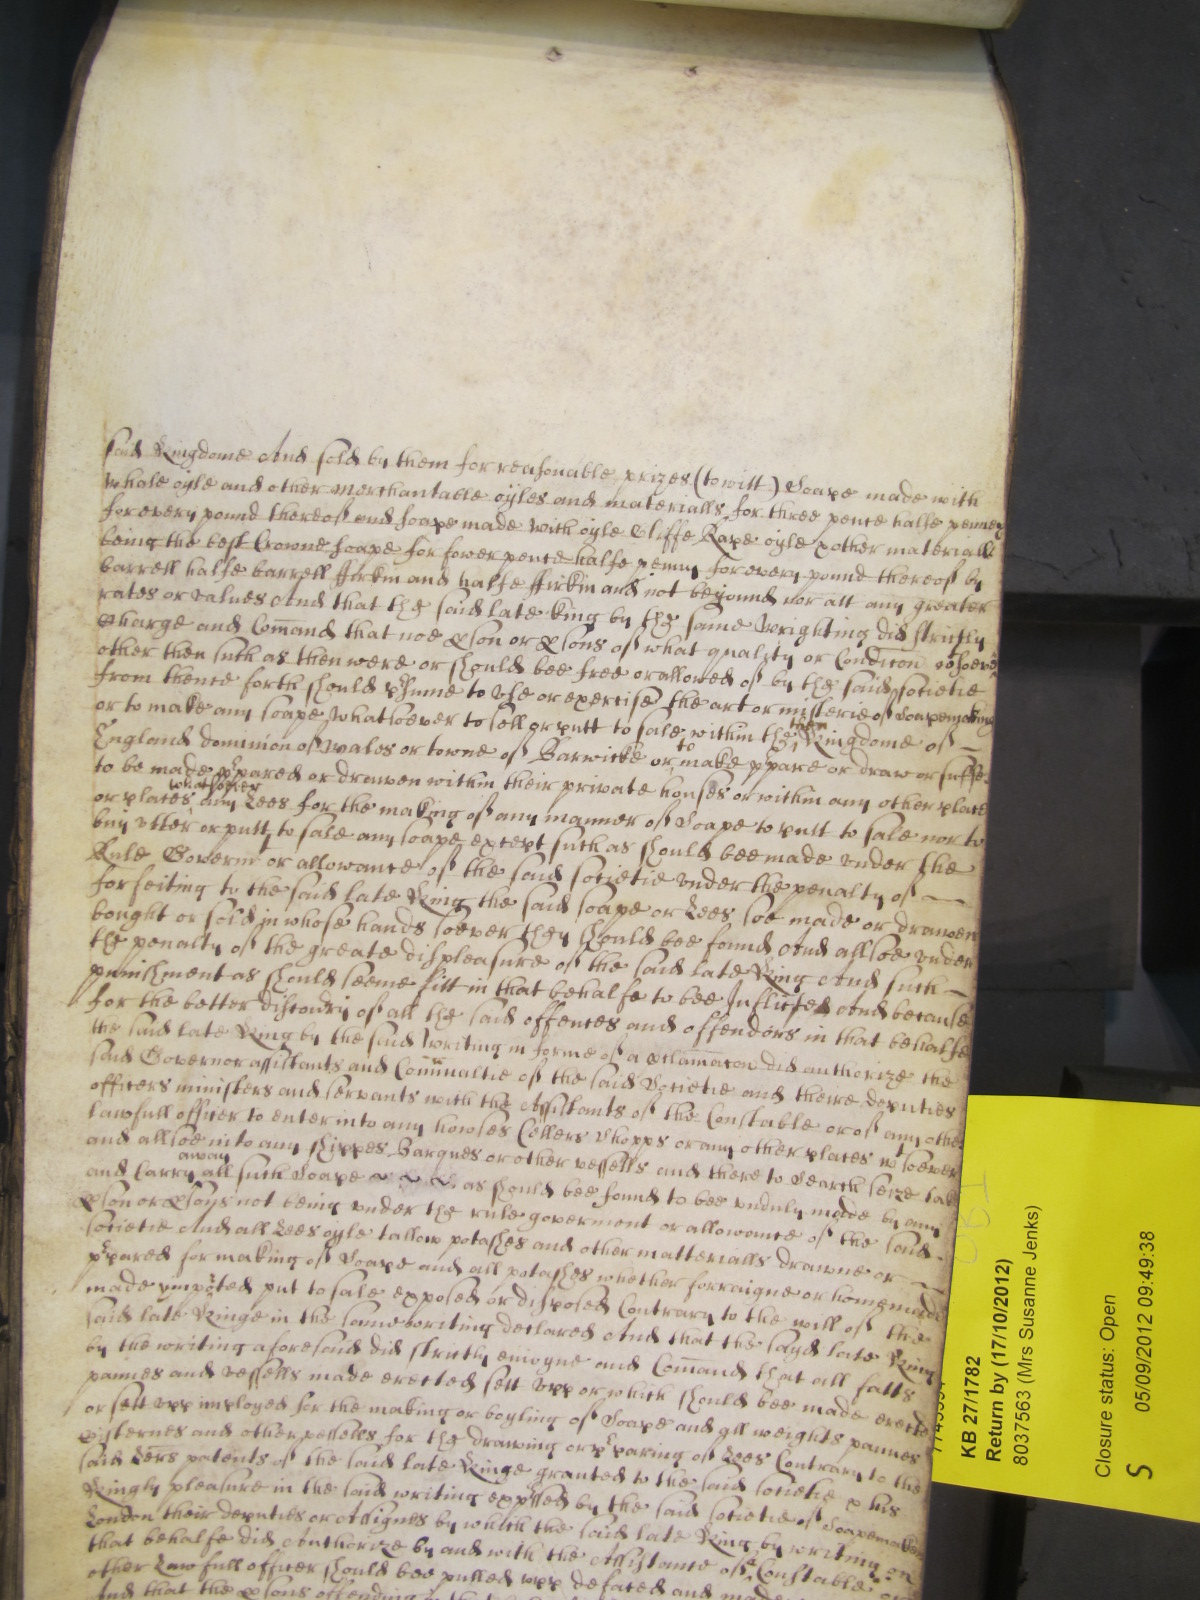 said Kingdome And sold by them for reasonable prizes (to witt) Soape made with
whale oyle and other merchantable oyles and materialls for three pence halfe penney
for every pound thereof and soape made with oyle Oliffe Rape oyle & other materialls
being the best Crowne soape for fower pence halfe penny for every pound thereof by
barrell halfe barrell ffirkin and halfe ffirkin and not beyound nor att any greater
rates or values And that the said late King by the same wrighting did strictly
Charge and Comand that noe pson or psons of what quality or Condicon whsoever
other then such as then were or should bee free or allowed of by the said societie
from thence forth should psume to use or exercise the art or misterie of Soapemaking
or to make any soape whatsoever to sell or putt to sale within the then Kingdome of
England dominion of Wales or towne of Barwicke or to make ppare or draw or suffer
to be made ppared or drawen within their private houses or within any other place
or places any whatsoever Lees for the making of any manner of Soape to putt to sale nor to
buy utter or putt to sale any soape except such as should bee made under the
Rule Governmt or allowance of the said societie under the penalty of
forfeiting to the said late King the said soape or Lees soe made or drawen
bought or sold in whose hands soever they should bee found And alsoe under
the penalty of the greate displeasure of the said late King And such
punishment as should seeme fitt in that behalfe to bee Inflicted And because
for the better discoury of all the said offences and offendors in that behalfe
the said late King by the said writing in forme of a pclamacon did authorize the
said Governor assistants and Comunaltie of the said Societie and theire deputies
officers ministers and servants with the Assistants of the Constable or of any other
lawfull officer to enter into any howses Cellers Shopps or any other places wtsoever
and alsoe into any shippes Barques or other vessells and there to Search seize take
and Carry away all such Soape as should bee found to bee unduly made by any
pson or psons not being under the rule goverment or allowance of the said
societie And all Lees oyle tallow potashes and other matterialls drawne or
ppared for making of Soape and all potashes whether forraigne or homemade
made ymported put to sale exposed or disposed Contrary to the will of the
said late Kinge in the same writing declared And that the sayd late King
by the writing aforesaid did strictly enioyne and Comand that all fatts
pannes and vessells made erected sett upp or which should bee made erected
or sett upp imployed for the making or boyling of Soape and all weights pannes
Cisternes and other vessells for the drawing or pparing of Lees Contrary to the
said Lers patents of the said late Kinge granted to the said societie & his
Kingly pleasure in the said writing expssed by the said societie of Soapemakers
London their deputies or assignes by which the said late King by writing in
that behalfe did Authorize by and with the Assistance of a Constable or
other Lawfull officer should bee pulled upp defaced and made
And that the psons offending
KB 27/1782
Return by (17/10/2012)
8037563 (Mrs Susanne Jenks)
Closure status: Open
S 05/09/2012 09:49:38